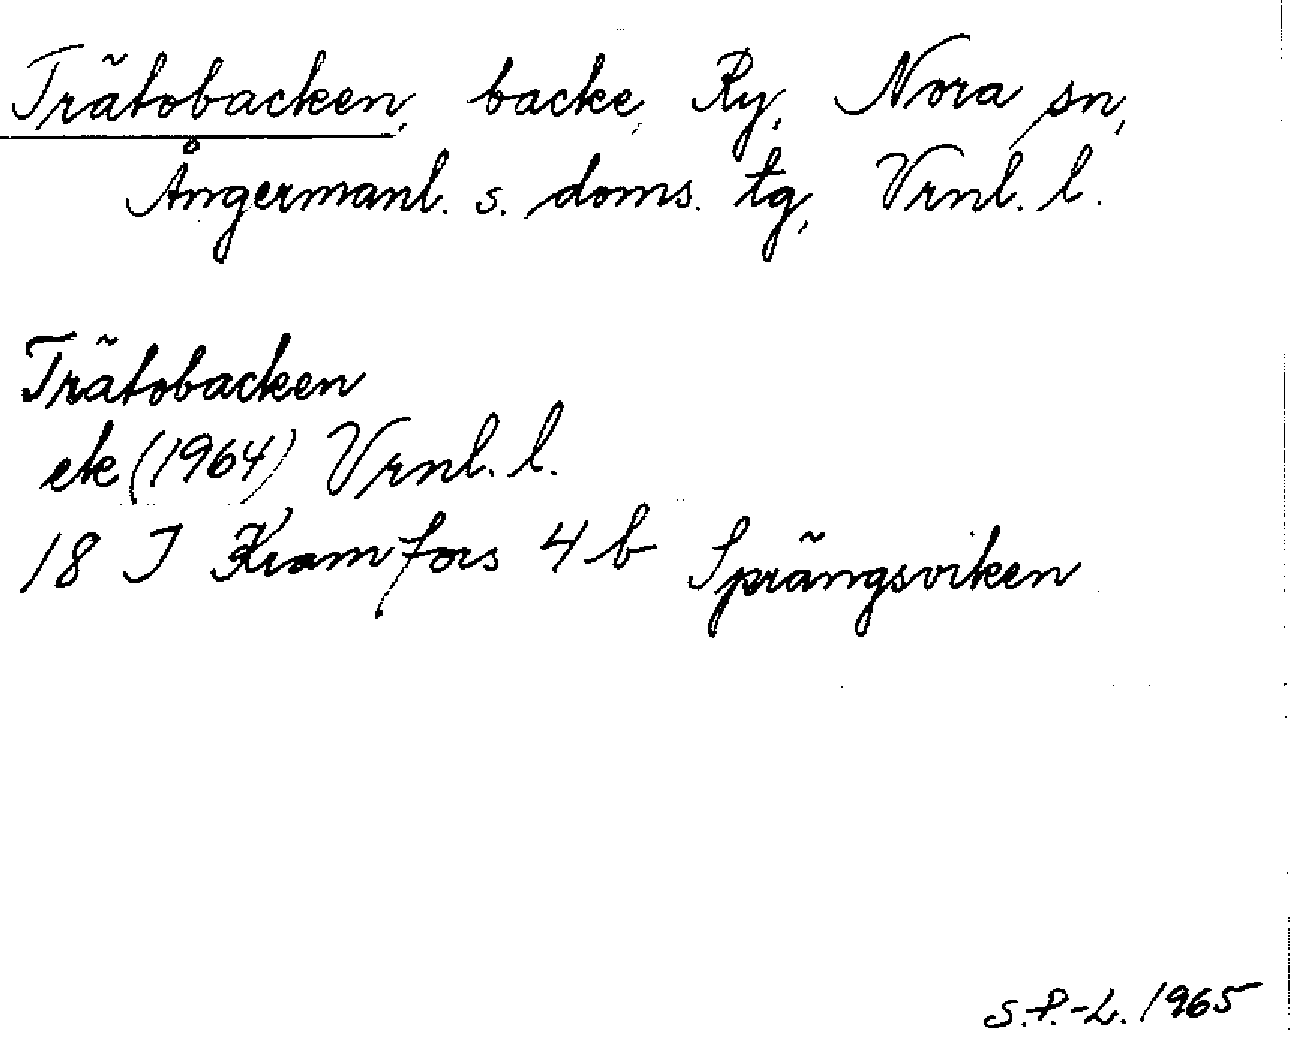 Trätobacken, backe, Ry, Nora sn,
Ångermanl. s. doms. tg, Vrnl. l.
Trätobacken
ek (1964) Vrnl. l.
18 I Kramfors 4 b Sprängsviken
S.P.-L. 1965